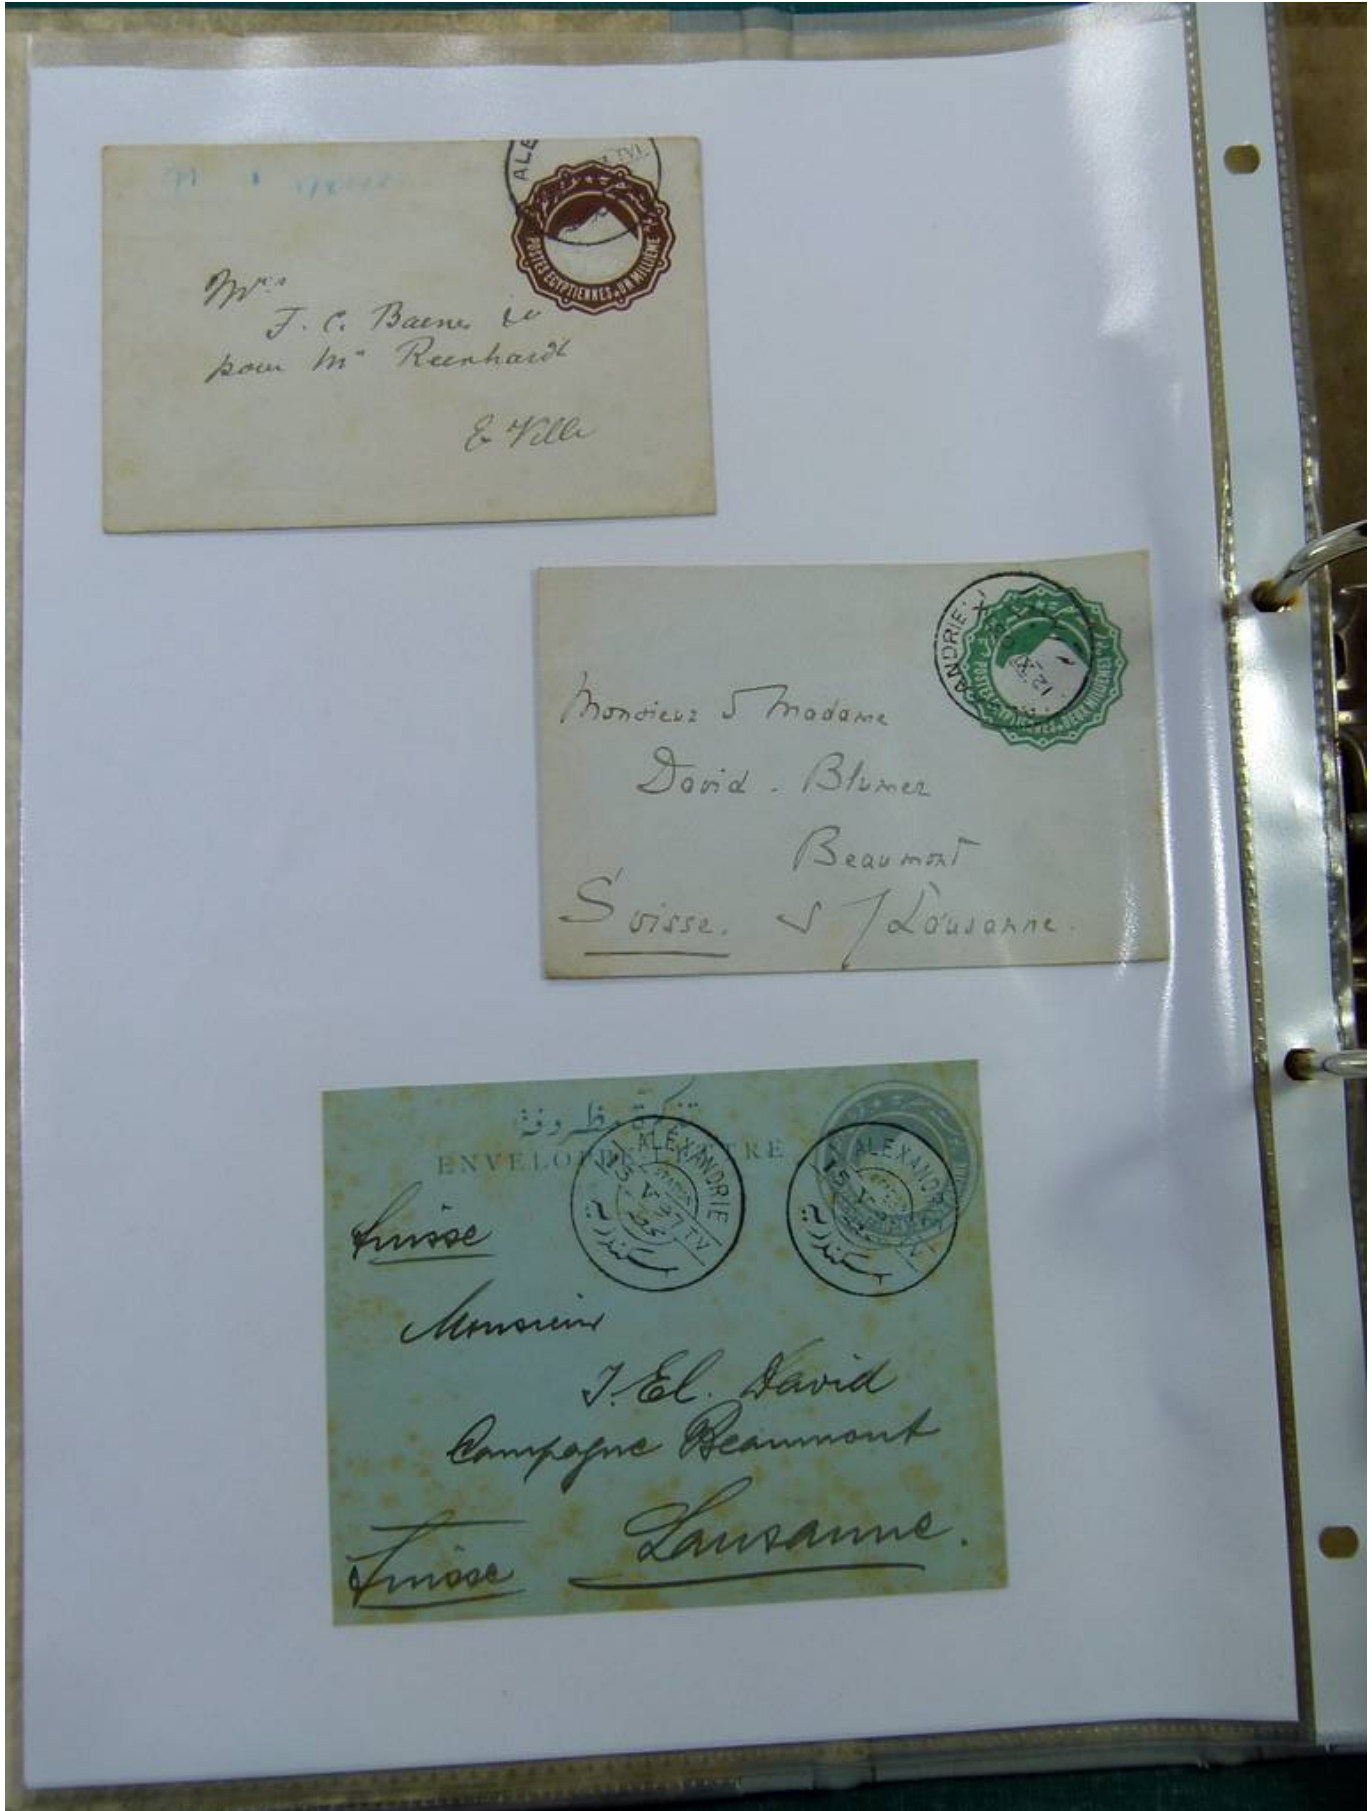 ALE
POSTES EGYPTIENNES UN MILLIEME
Mrs
F. C. Baines
pour Mr Reinhardt
E Ville
ANDRIE
12 XI
POSTES EGYPTIENNES DEUX MILLIEMES
Monsieur & Madame
David - Blumer
Beaumont
Suisse. s/Lausanne.
تذكرة مظروفة
ENVELOPPE LETTRE
ALEXANDRIE
15 V
اسكندرية
ALEXANDRIE
15 V
اسكندرية
Suisse
Monsieur
J. El. David
Campagne Beaumont
Lausanne.
Suisse